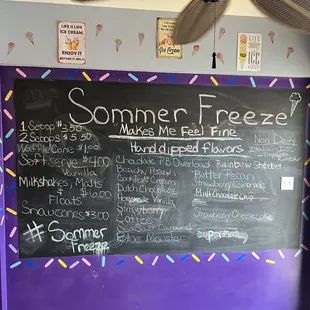 LIFE IS LIKE
ICE CREAM
ENJOY IT
BEFORE IT MELTS
Sommer Freeze
Makes Me Feel Fine
Hand dipped flavors
1 Scoop $3.50
2 Scoops $5.50
Waffle Cone $1.00
Soft serve $4.00
Vanilla
Milkshakes, Malts
Floats
Snowcones $3.00
#Sommer
Freeze
Chocolate PB Overload
Dutch Chocolate
Vanilla
Strawberry
Coffee
Blue Monster
Rainbow Sherbet
Butter Pecan
Strawberry
Mint Chocolate Chip
Strawberry Cheesecake
Superman
Non Dairy